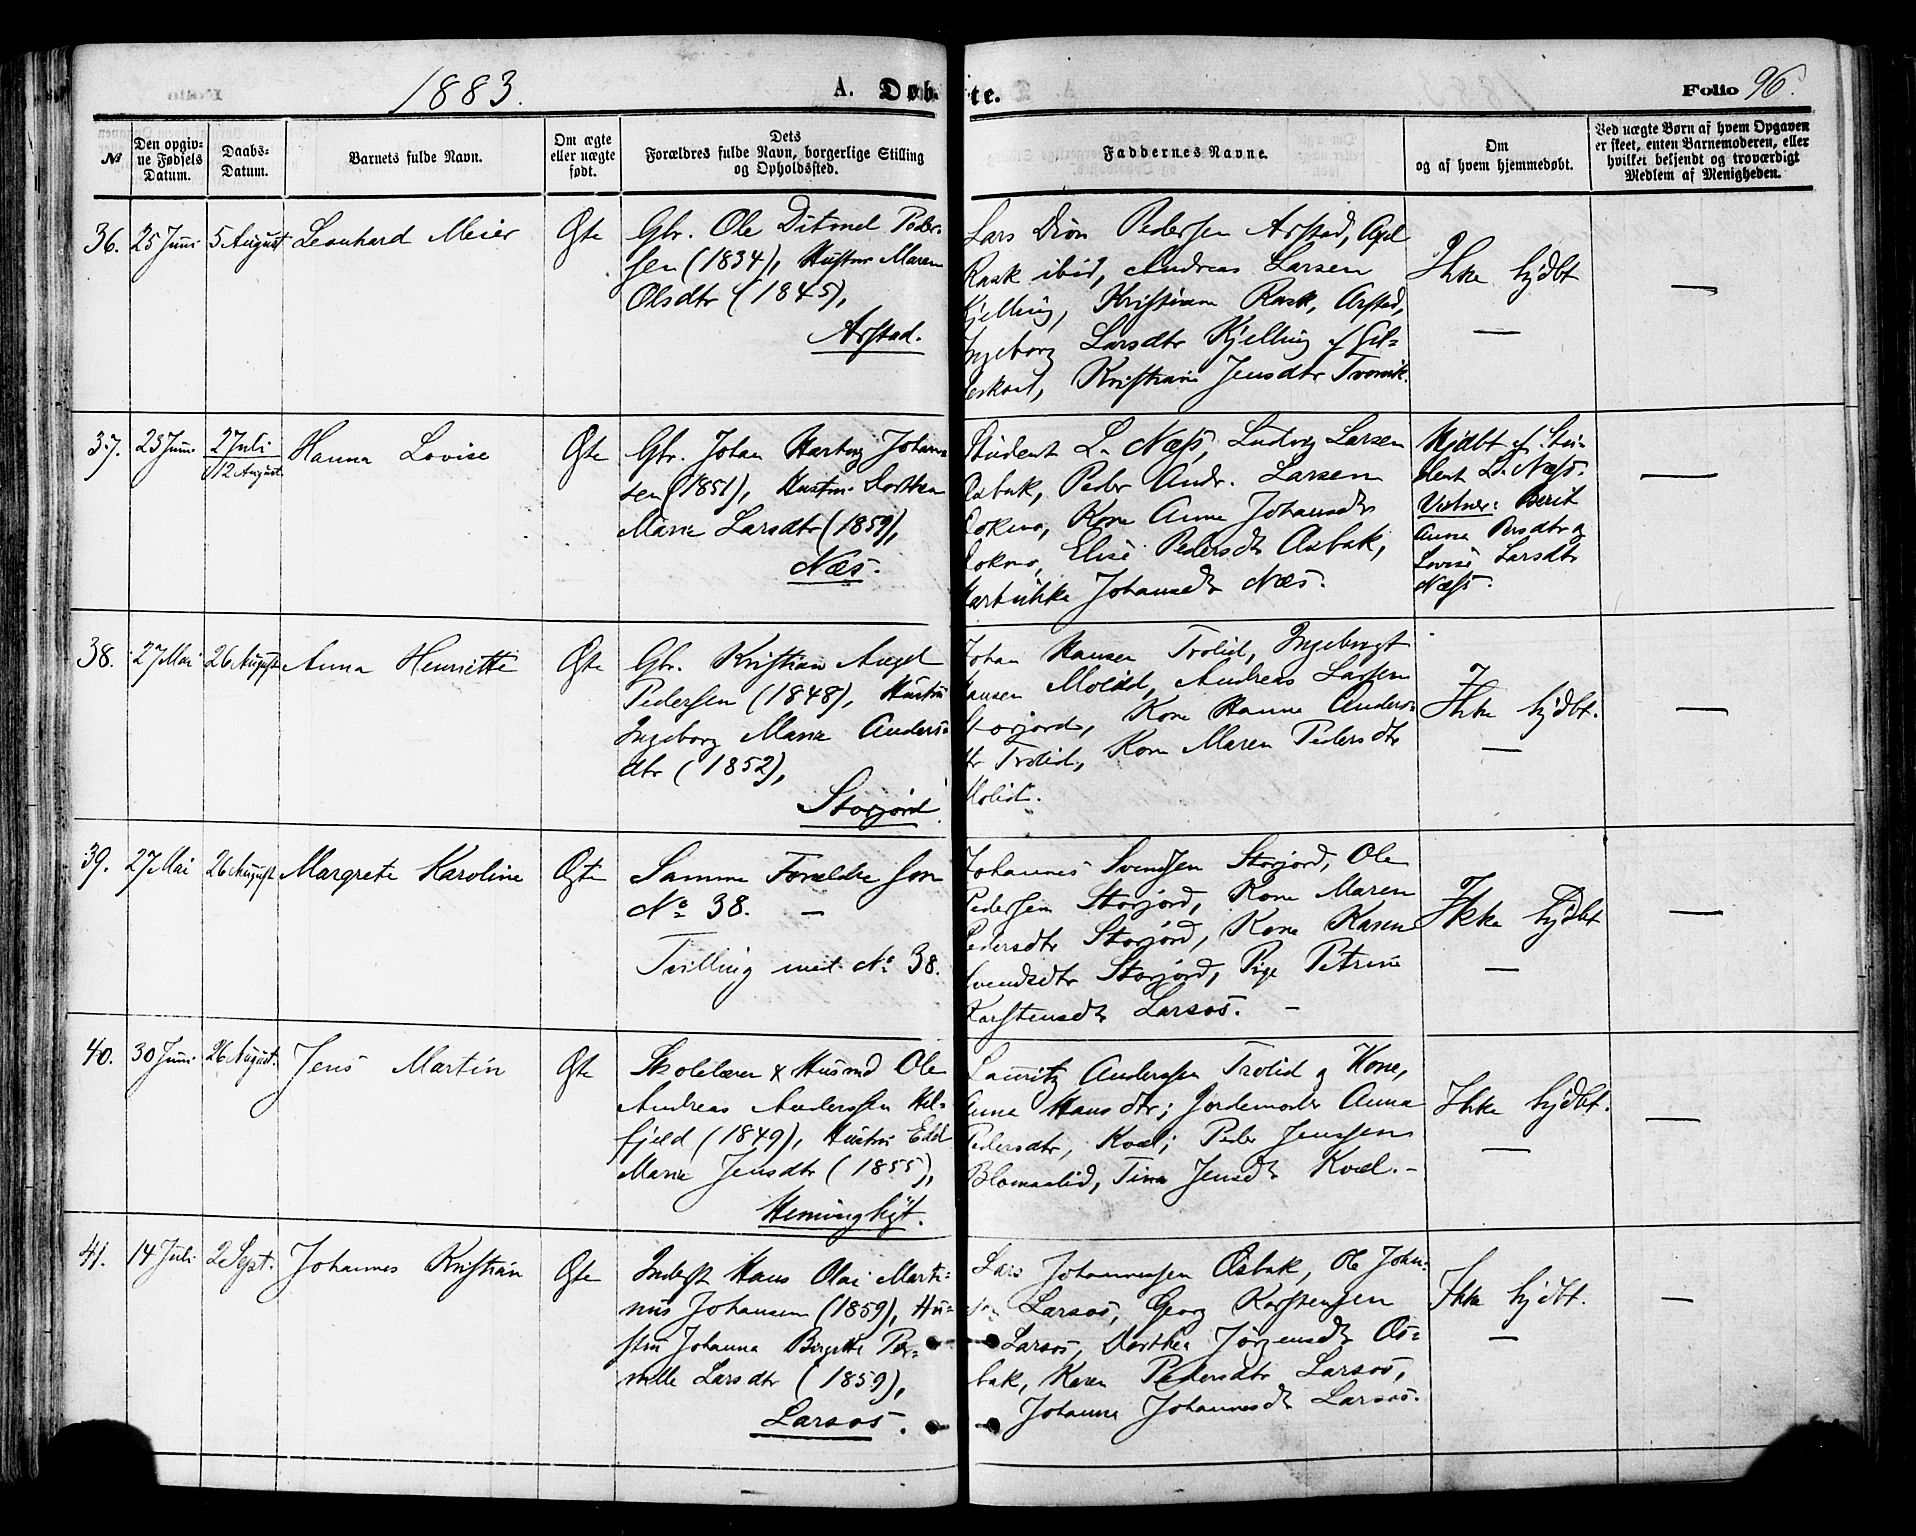 1883.
A. Døb
te.
Folio 96.
№
Den opgiv-
ne Fødsels
Datum.
Daabs-
Datum.
Barnets fulde Navn.
Om ægte
eller uægte
født.
Dets
Forældres fulde Navn, borgerlige Stilling
og Opholdssted.
Faddernes Navne.
Om
og af hvem hjemmedøbt.
Ved uægte Børn af hvem Opgaven
er skeet, enten Barnemoderen, eller
hvilket bekjendt og troværdigt
Medlem af Menigheden.
36. 25 Juni 5 August Leonhard Meier Ægte
Gbr. Ole Ditmel Peder-
sen (1834), Hustru Maren
Olsdtr (1845),
Arstad.
Lars Dion Pedersen Arstad,
Rask ibid, Andreas Larsen
Kjelling, Kristiane Rask, Arstad,
Ingeborg Larsdtr Kjelling
Kristiane Jensdtr
Ikke hjdbt
—
—
37. 23 Juni 2 Juli
12 August
Hanna Lovise Ægte
Gbr. Johan Hartvig Johan-
sen (1851), Hustru Dorthea
Marie Larsdtr (1859),
Næs.
Student L. Næss, Ludvig Larsen
Peder Andr. Larsen
Kone Anne Johansdtr
Elise Pedersdtr Osbak,
Johansdtr Næs.
Hjdbt af Stu-
dent L. Næss.
Vidner: Berit
Anna Persdtr og
Lovise Larsdtr
Næss.
—
38. 27 Mai 26 August Anna Henriette Ægte
Gbr. Kristian Angel
Pedersen (1848), Hustru
Ingeborg Marie Anders-
dtr (1852),
Storjord.
Johan Hansen Trolid, Ingebrigt
Hansen Molid, Andreas Larsen
Storjord, Kone Hanne Anders-
dtr Trolid, Kone Maren Pedersdtr
Molid.
Ikke hjdbt.
—
—
39. 27 Mai 26 August Margrete Karoline Ægte
Samme Forældre som
No 38. —
Tvilling med No 38.
Johannes Svendsen Storjord, Ole
Pedersen Storjord, Kone Maren
Pedersdtr Storjord, Kone Karen
Svendsdtr Storjord, Pige Petrine
Karstensdtr Larsos. —
Ikke hjdbt
—
—
40. 30 Juni 26 August. Jens Martin Ægte
Skolelærer & Husmd Ole
Andreas Anderssen Hel-
fjeld (1849), Hustru
Marie Jensdtr (1855),
Heminghyt.
Lauritz Anderssen Trolid og Kone,
Anne Hansdtr; Jordemoder Anna
Pedersdtr, Kvæl; Peder Jenssen
Blomaalid, Tina Jensdtr Kvæl. —
Ikke hjdbt.
—
—
41. 14 Juli 2 Sept. Johannes Kristian Ægte
Inderst Hans Olai Marti-
nus Johansen (1859), Hu-
stru Johanna Birgitte Per-
nille Larsdtr (1859),
Larsos.
Lars Johannessen Osbak, Ole Johan-
sen Larsos, Georg Karstensen
Larsos, Dorthea Jørgensdtr Os-
bak, Karen Pedersdtr Larsos,
Johanna Johannesdtr Larsos.
Ikke hjdbt.
—
—